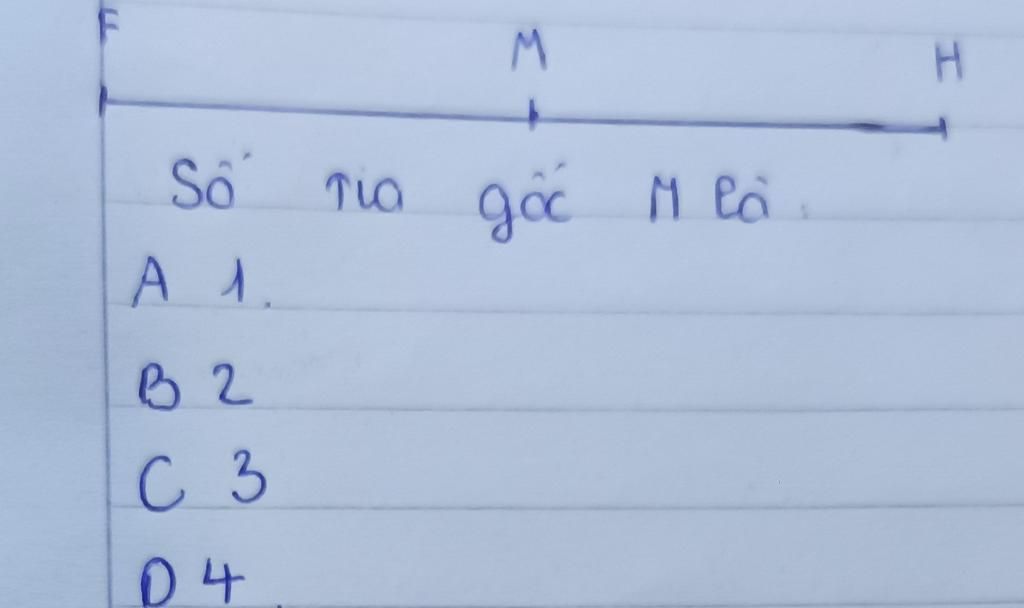 F M H
Số tia gốc M là.
A 1.
B 2
C 3
D 4.